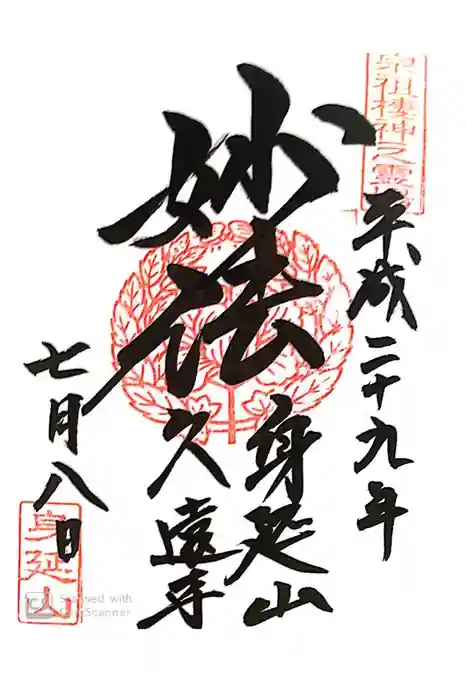 宗祖棲神之霊場
平成二十九年
妙法
身延山
久遠寺
七月八日
身延山
Scanned with
CamScanner